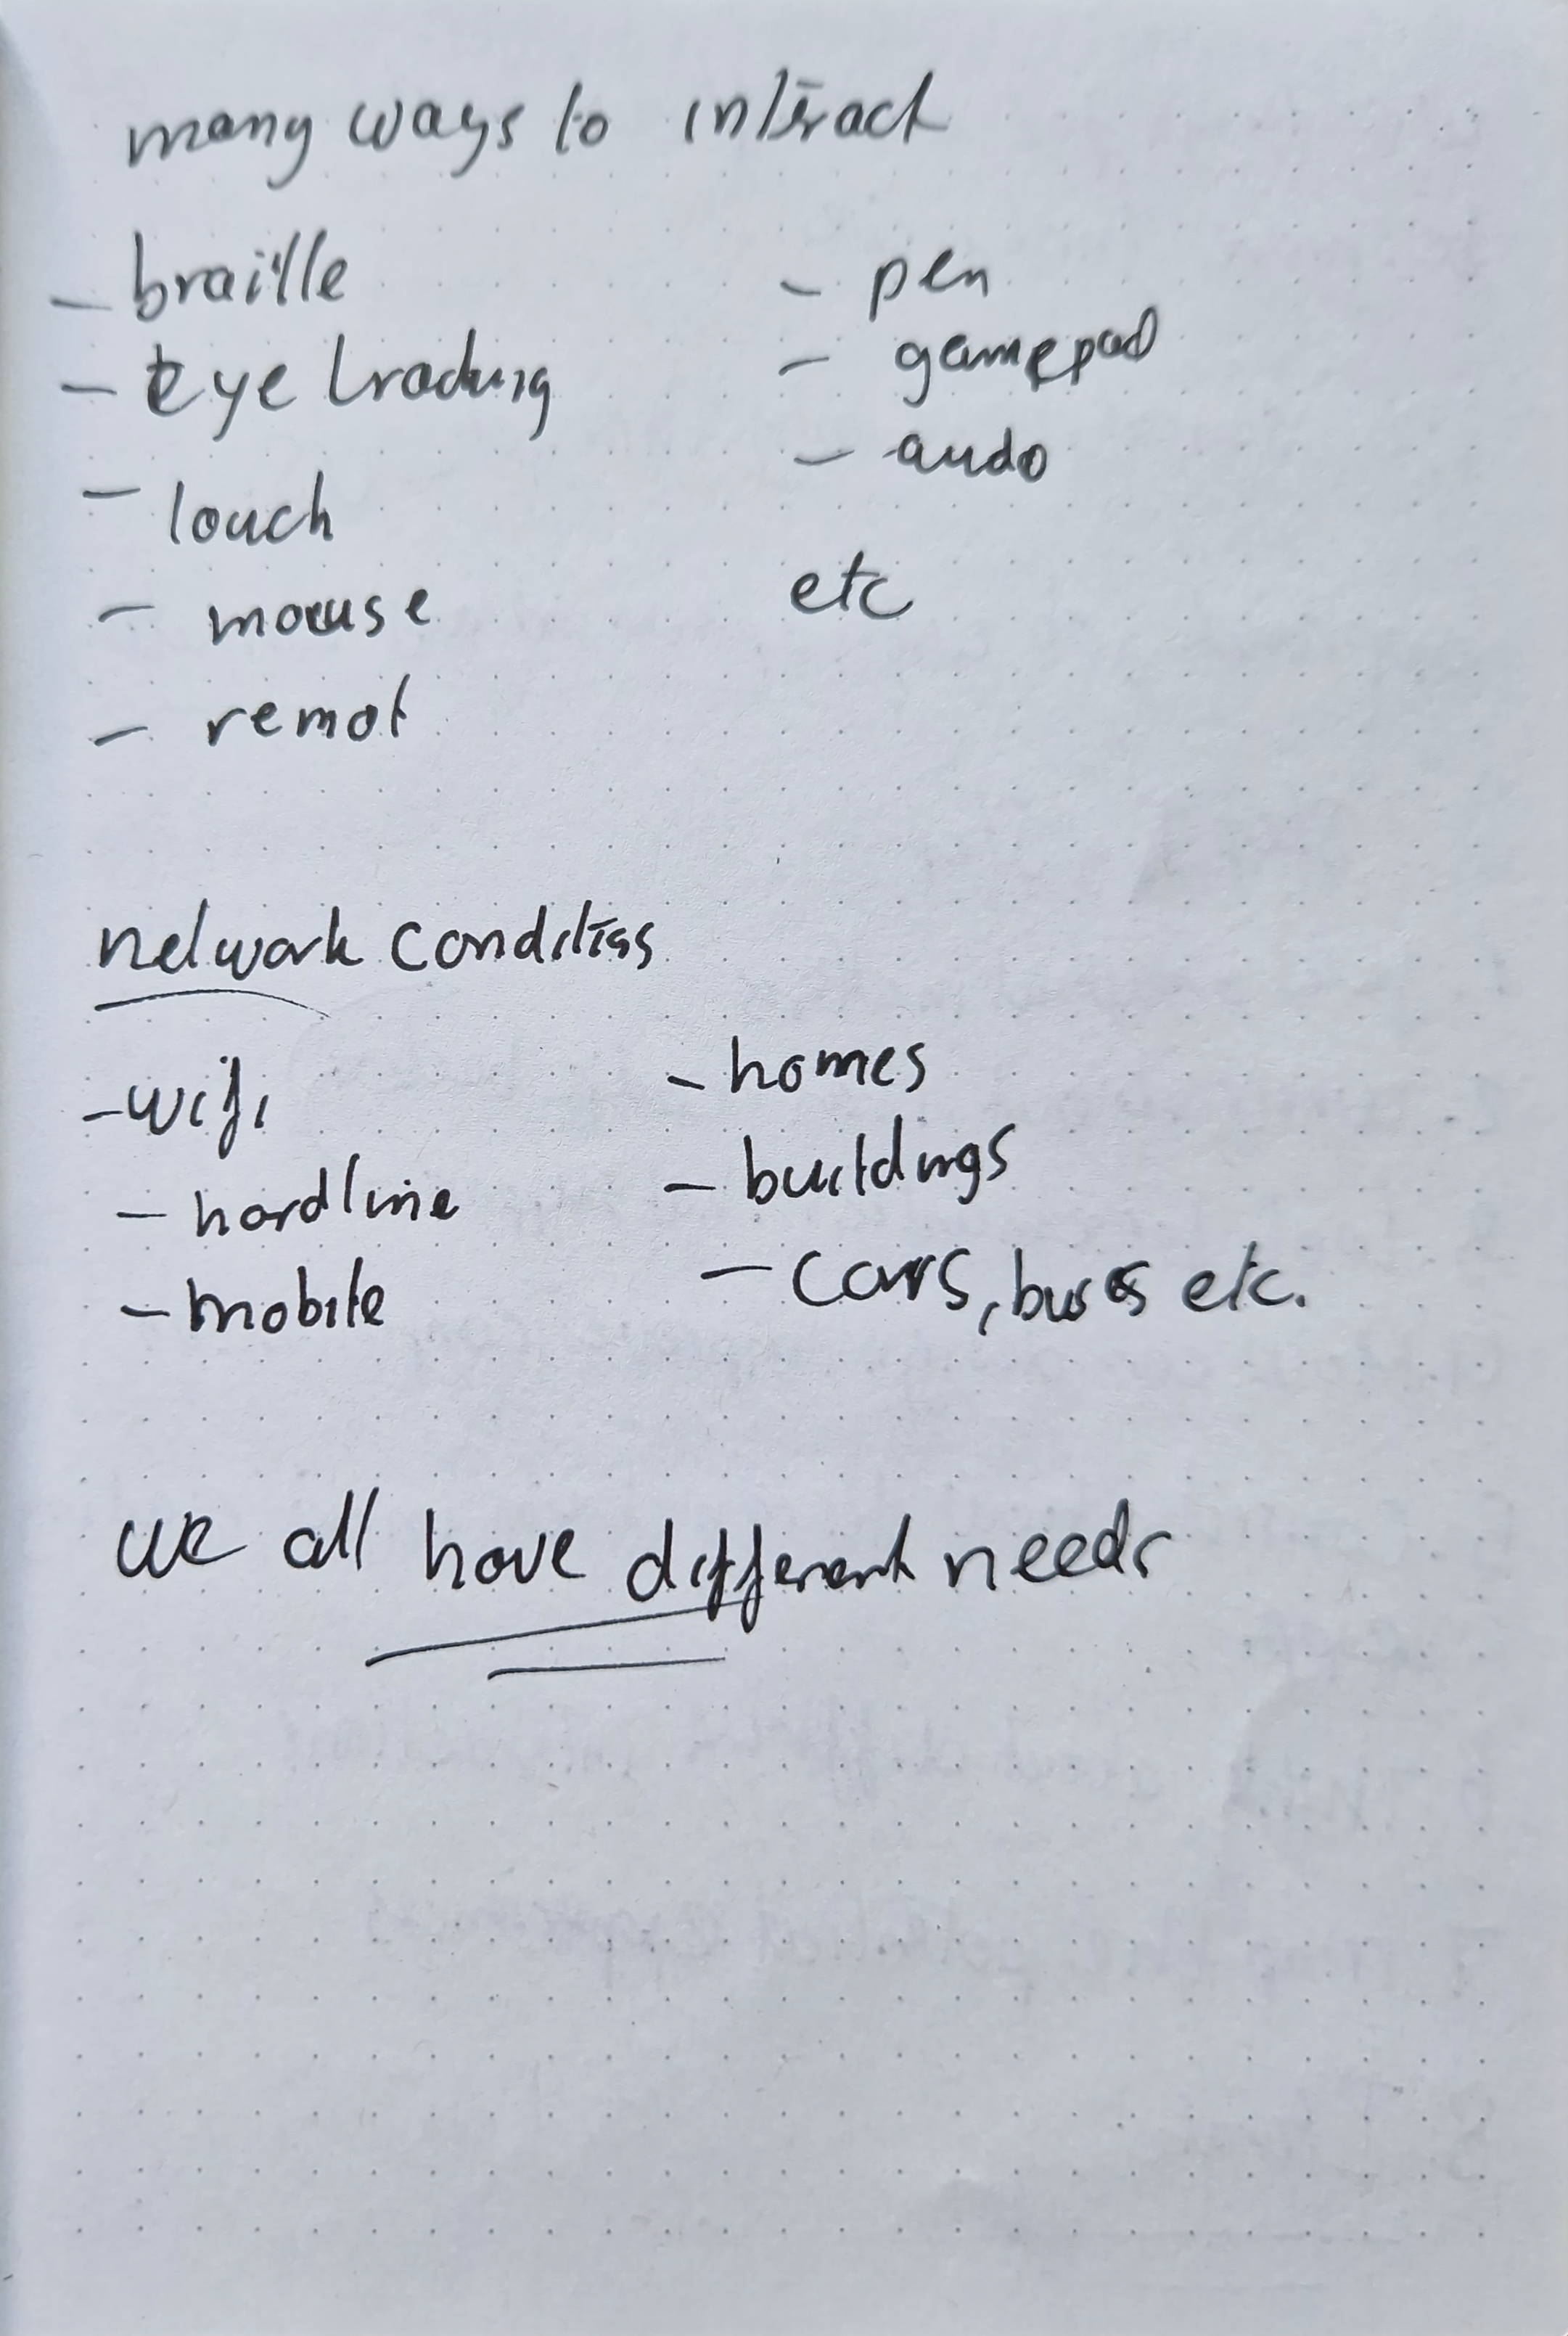 many ways to interact
- braille
- Eye tracking
- touch
- mouse
- remot
- pen
- gamepad
- audo
etc
network conditions
- wifi
- hardline
- mobile
- homes
- buildings
- cars, buses etc.
we all have different needs